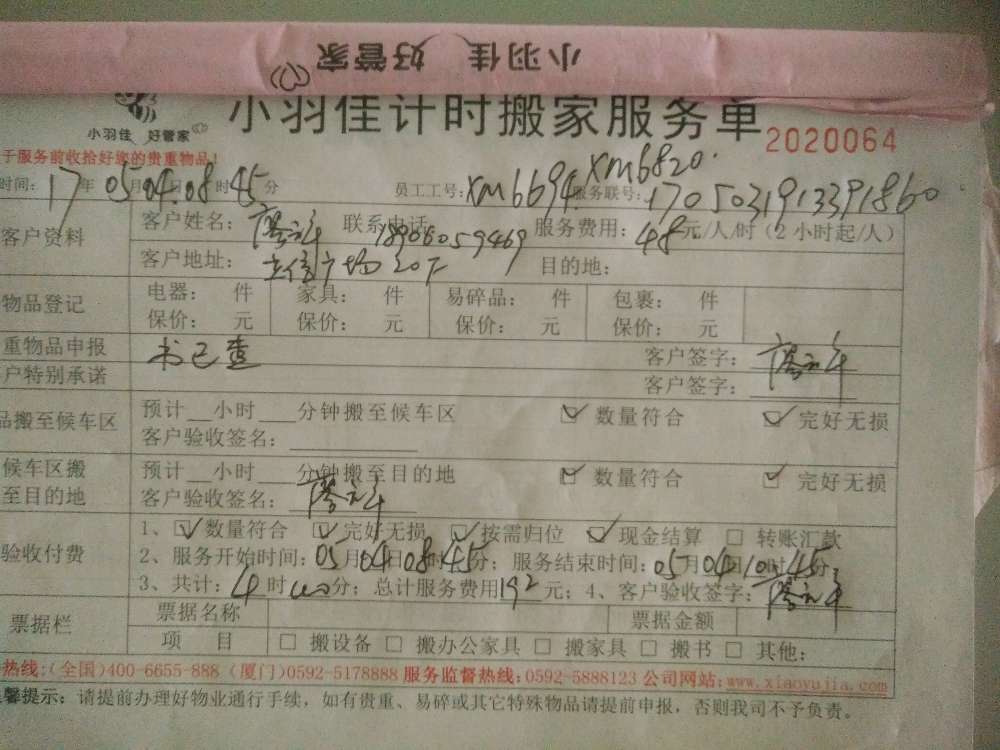 小羽佳 好管家
小羽佳 好管家
小羽佳计时搬家服务单 2020064
于服务前收拾好您的贵重物品!
时间: 17年05月04日08时45分 员工工号: XM6694 XM6820. 服务联号: 170503191339 1860
客户资料
客户姓名: 联系电话 18906059469 服务费用: 48元/人/时(2小时起/人)
客户地址: 立信广场20F 目的地:
物品登记
电器: 件 家具: 件 易碎品: 件 包裹: 件
保价: 元 保价: 元 保价: 元 保价: 元
重物品申报 书已查 客户签字:
户特别承诺 客户签字:
品搬至候车区
预计__小时___分钟搬至候车区 ☑ 数量符合 ☑ 完好无损
客户验收签名:
候车区搬至目的地
预计__小时___分钟搬至目的地 ☑ 数量符合 ☑ 完好无损
客户验收签名:
验收付费
1、☑数量符合 ☑完好无损 ☑按需归位 ☑现金结算 □ 转账汇款
2、服务开始时间: 05月04日08时45分; 服务结束时间: 05月04日10时45分;
3、共计: 4时00分; 总计服务费用192元; 4、客户验收签字:
票据栏
票据名称 票据金额
项 目 □ 搬设备 □ 搬办公家具 □ 搬家具 □ 搬书 □ 其他:
热线:(全国)400-6655-888 (厦门)0592-5178888 服务监督热线:0592-5888123 公司网站:www.xiaoyujia.com
馨提示: 请提前办理好物业通行手续, 如有贵重、易碎或其它特殊物品请提前申报, 否则我司不予负责。